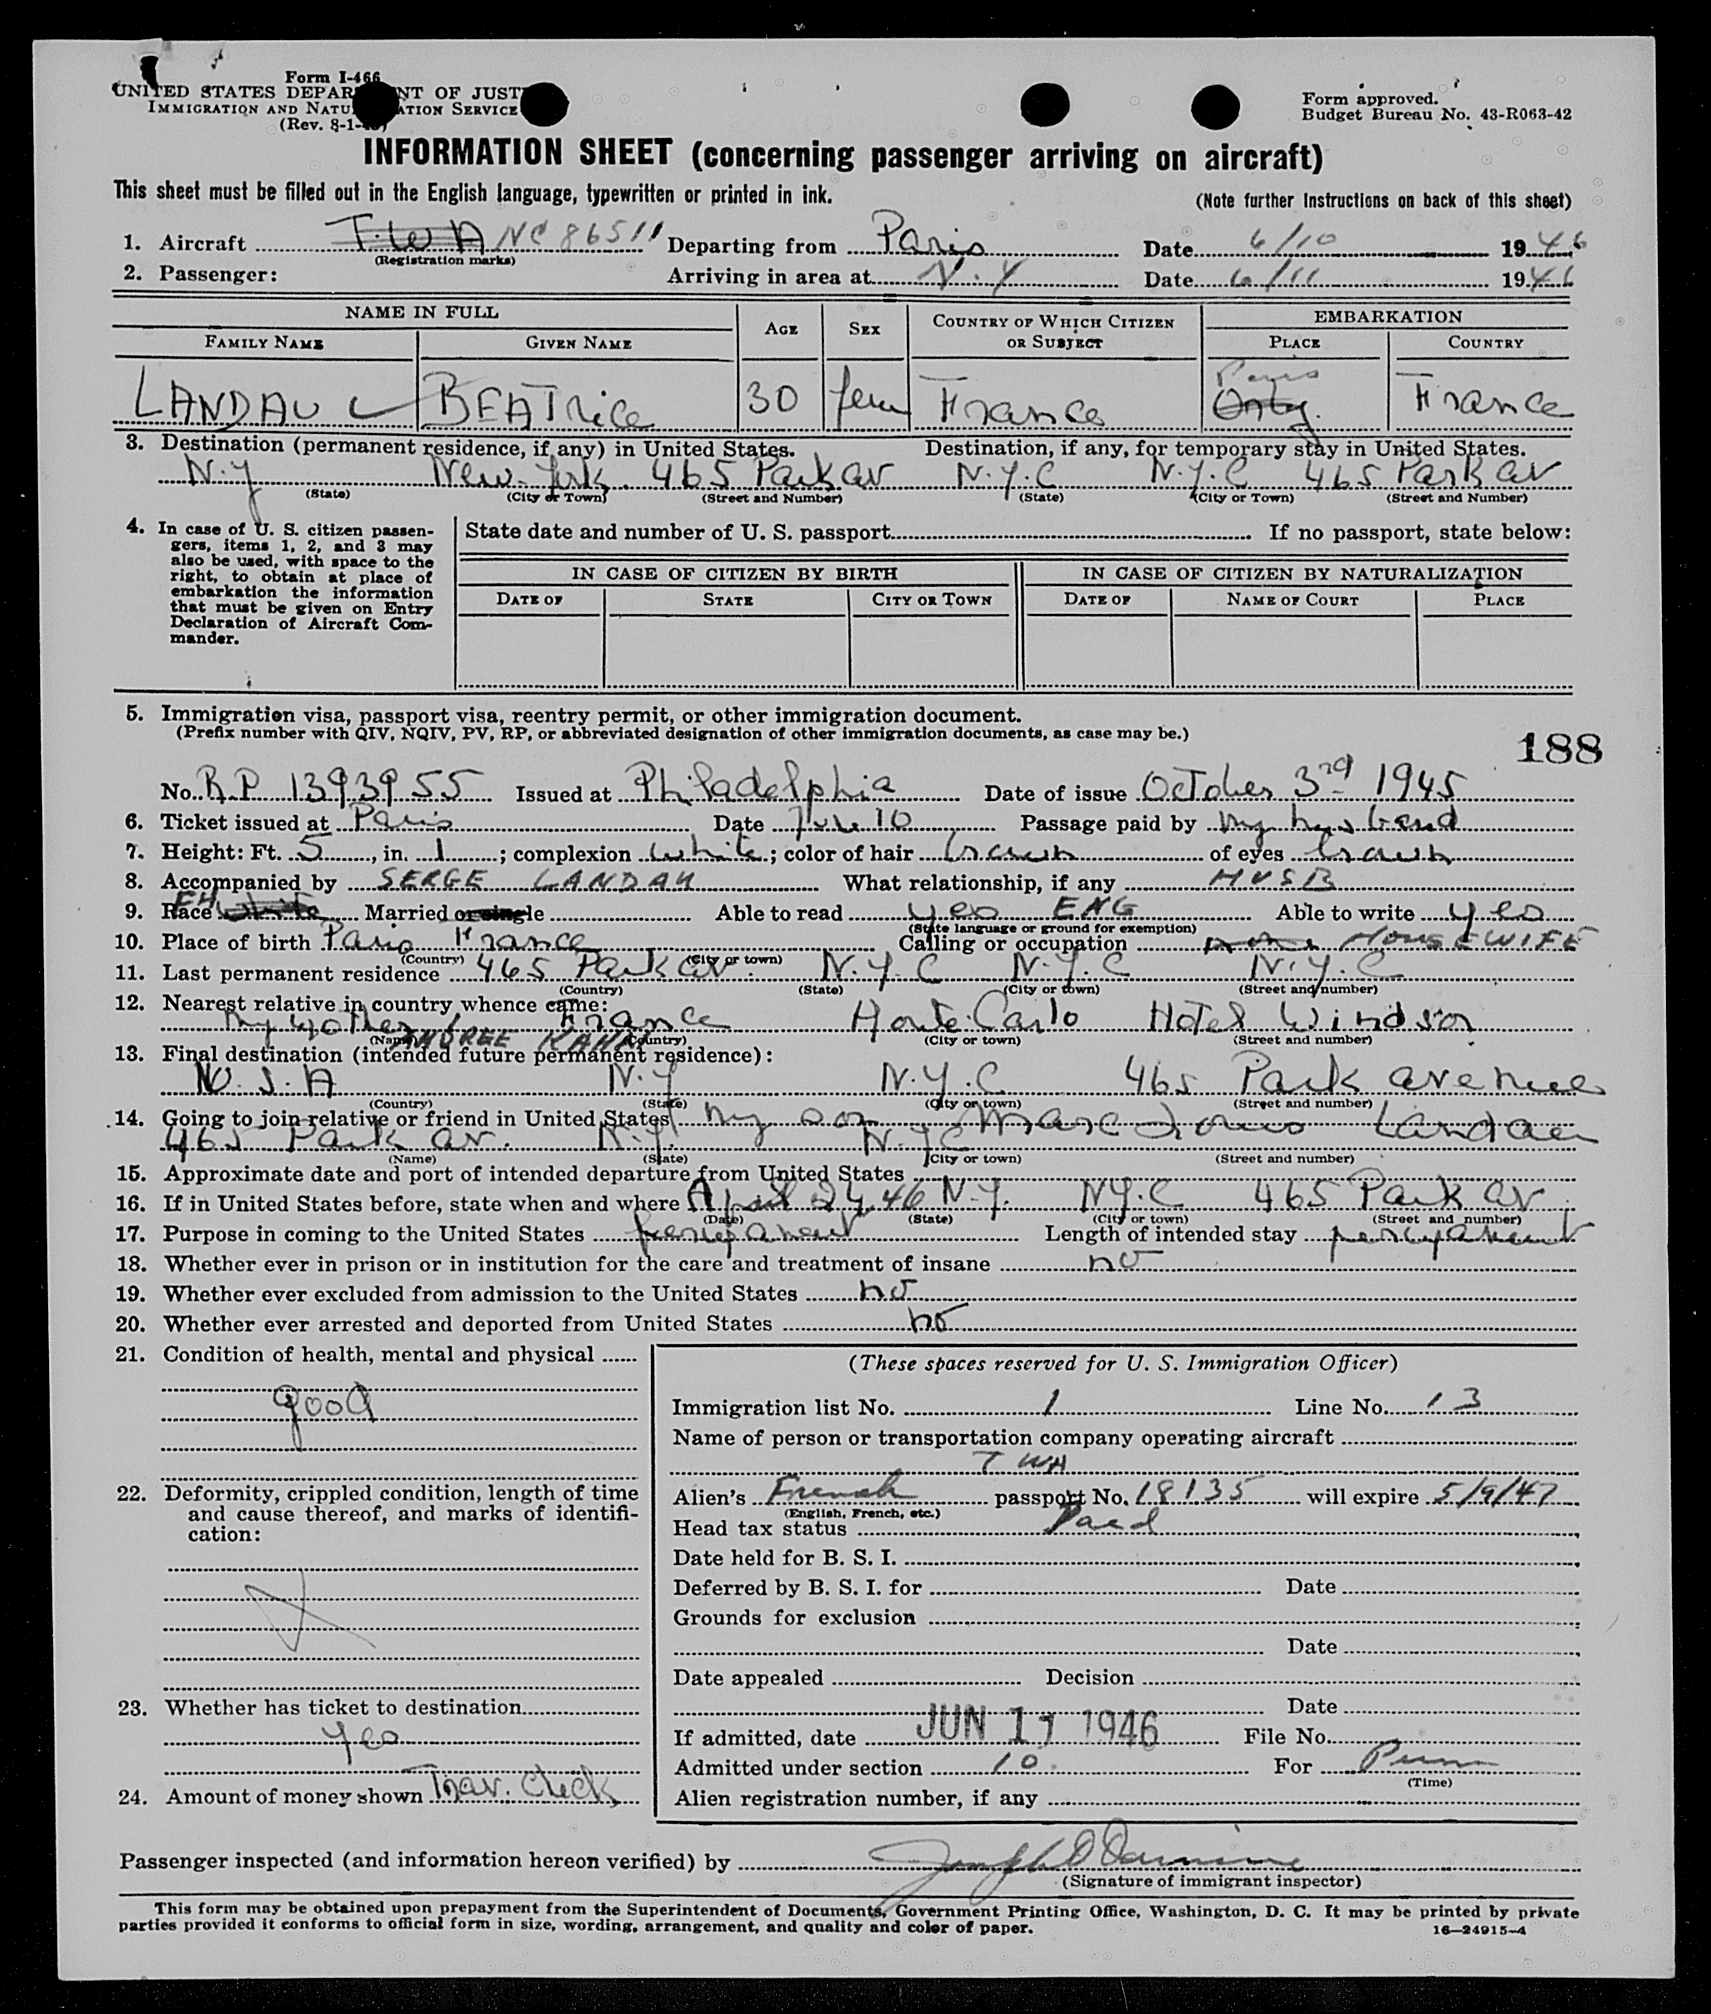 Form I-466
UNITED STATES DEPARTMENT OF JUSTICE
IMMIGRATION AND NATURALIZATION SERVICE
(Rev. 8-1-45)
Form approved.
Budget Bureau No. 43-R063-42
INFORMATION SHEET (concerning passenger arriving on aircraft)
This sheet must be filled out in the English language, typewritten or printed in ink.
(Note further instructions on back of this sheet)
1. Aircraft T.W A NC 86511 Departing from Paris Date 6/10 1946
(Registration marks)
2. Passenger: Arriving in area at N.Y Date 6/11 1946
NAME IN FULL AGE SEX COUNTRY OF WHICH CITIZEN OR SUBJECT EMBARKATION
FAMILY NAME GIVEN NAME PLACE COUNTRY
LANDAU BEATrice 30 fem France Paris Orly. France
3. Destination (permanent residence, if any) in United States. Destination, if any, for temporary stay in United States.
N.Y New York. 465 Park av N.Y.C N.Y.C 465 Park av
(State) (City or Town) (Street and Number) (State) (City or Town) (Street and Number)
4. In case of U. S. citizen passengers, items 1, 2, and 3 may also be used, with space to the right, to obtain at place of embarkation the information that must be given on Entry Declaration of Aircraft Commander.
State date and number of U. S. passport If no passport, state below:
IN CASE OF CITIZEN BY BIRTH IN CASE OF CITIZEN BY NATURALIZATION
DATE OF STATE CITY OR TOWN DATE OF NAME OF COURT PLACE
5. Immigration visa, passport visa, reentry permit, or other immigration document.
(Prefix number with QIV, NQIV, PV, RP, or abbreviated designation of other immigration documents, as case may be.)
188
No. R.P 1393955 Issued at Philadelphia Date of issue October 3rd 1945
6. Ticket issued at Paris Date June 10 Passage paid by my husband
7. Height: Ft. 5, in. 1; complexion white; color of hair brown of eyes brown
8. Accompanied by SERGE LANDAU What relationship, if any HUSB
9. Race FH white Married or single Able to read yes ENG Able to write yes
(State language or ground for exemption)
10. Place of birth Paris France Calling or occupation none HOUSEWIFE
(Country) (City or town)
11. Last permanent residence 465 Park av. N.Y.C N.Y.C N.Y.C
(Country) (State) (City or town) (Street and number)
12. Nearest relative in country whence came:
my mother France Monte Carlo Hotel Windsor
ANDREE KAHN
(Name) (Country) (City or town) (Street and number)
13. Final destination (intended future permanent residence):
U.S.A N.Y N.Y.C 465 Park avenue
(Country) (State) (City or town) (Street and number)
14. Going to join relative or friend in United States my son Marc Louis Landau
465 Park av. N.Y. N.Y.C
(Name) (State) (City or town) (Street and number)
15. Approximate date and port of intended departure from United States
16. If in United States before, state when and where April 24 46 N.Y. NY.C 465 Park av
(Date) (State) (City or town) (Street and number)
17. Purpose in coming to the United States permanent Length of intended stay permanent
18. Whether ever in prison or in institution for the care and treatment of insane no
19. Whether ever excluded from admission to the United States no
20. Whether ever arrested and deported from United States no
21. Condition of health, mental and physical
good
22. Deformity, crippled condition, length of time and cause thereof, and marks of identification:
23. Whether has ticket to destination
yes
24. Amount of money shown Trav. Check
(These spaces reserved for U. S. Immigration Officer)
Immigration list No. 1 Line No. 13
Name of person or transportation company operating aircraft
TWA
Alien's French passport No. 18135 will expire 5/9/47
(English, French, etc.)
Head tax status Paid
Date held for B. S. I.
Deferred by B. S. I. for Date
Grounds for exclusion
Date
Date appealed Decision
Date
If admitted, date JUN 11 1946 File No.
Admitted under section 10. For Perm
(Time)
Alien registration number, if any
Passenger inspected (and information hereon verified) by
(Signature of immigrant inspector)
This form may be obtained upon prepayment from the Superintendent of Documents, Government Printing Office, Washington, D. C. It may be printed by private
parties provided it conforms to official form in size, wording, arrangement, and quality and color of paper.
16—24915-4